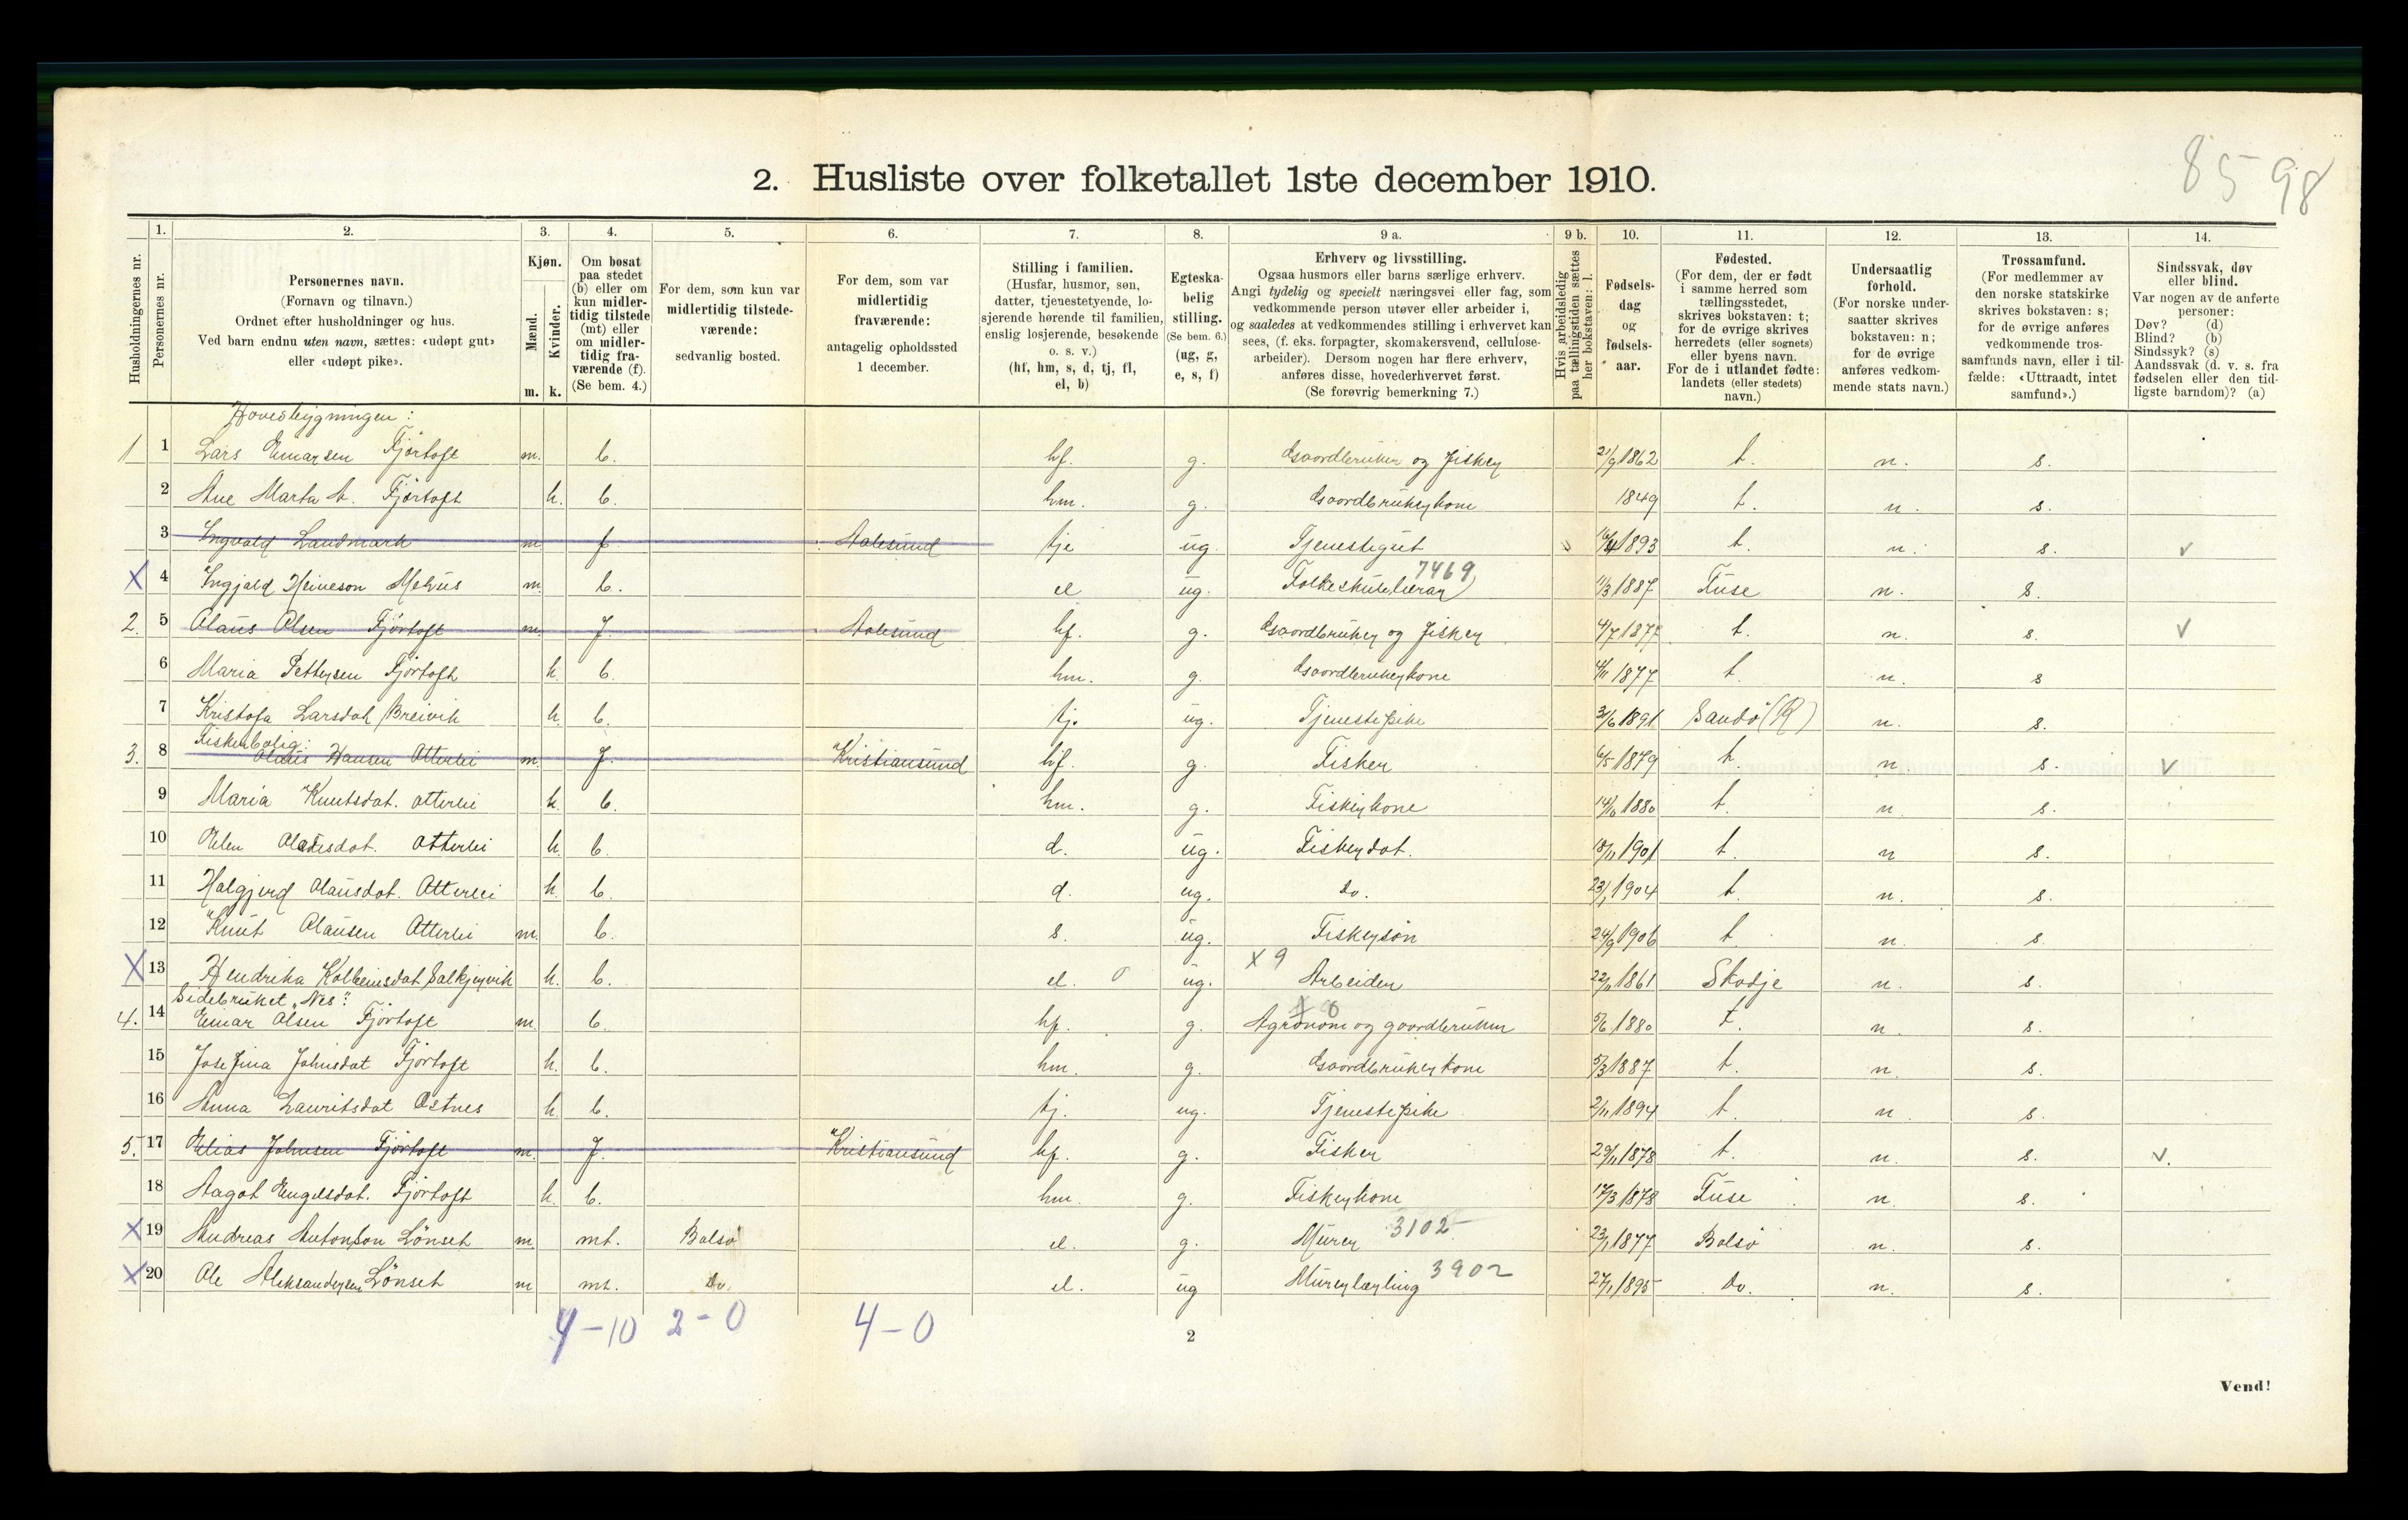 85 98
2. Husliste over folketallet 1ste december 1910.
1. 2. 3. 4. 5. 6. 7. 8. 9 a. 9 b. 10. 11. 12. 13. 14.
Husholdningernes nr.
Personernes nr.
Personernes navn.
(Fornavn og tilnavn.)
Ordnet efter husholdninger og hus.
Ved barn endnu uten navn, sættes: «udøpt gut»
eller «udøpt pike».
Kjøn.
Mænd.
Kvinder.
m. k.
Om bosat
paa stedet
(b) eller om
kun midler-
tidig tilstede
(mt) eller
om midler-
tidig fra-
værende (f).
(Se bem. 4.)
For dem, som kun var
midlertidig tilstede-
værende:
sedvanlig bosted.
For dem, som var
midlertidig
fraværende:
antagelig opholdssted
1 december.
Stilling i familien.
(Husfar, husmor, søn,
datter, tjenestetyende, lo-
sjerende hørende til familien,
enslig losjerende, besøkende
o. s. v.)
(hf, hm, s, d, tj, fl,
el, b)
Egteska-
belig
stilling.
(Se bem. 6.)
(ug, g,
e, s, f)
Erhverv og livsstilling.
Ogsaa husmors eller barns særlige erhverv.
Angi tydelig og specielt næringsvei eller fag, som
vedkommende person utøver eller arbeider i,
og saaledes at vedkommendes stilling i erhvervet kan
sees, (f. eks. forpagter, skomakersvend, cellulose-
arbeider). Dersom nogen har flere erhverv,
anføres disse, hovederhvervet først.
(Se forøvrig bemerkning 7.)
Hvis arbeidsledig
paa tællingstiden sættes
her bokstaven: l.
Fødsels-
dag
og
fødsels-
aar.
Fødested.
(For dem, der er født
i samme herred som
tællingsstedet,
skrives bokstaven: t;
for de øvrige skrives
herredets (eller sognets)
eller byens navn.
For de i utlandet fødte:
landets (eller stedets)
navn.)
Undersaatlig
forhold.
(For norske under-
saatter skrives
bokstaven: n;
for de øvrige
anføres vedkom-
mende stats navn.)
Trossamfund.
(For medlemmer av
den norske statskirke
skrives bokstaven: s;
for de øvrige anføres
vedkommende tros-
samfunds navn, eller i til-
fælde: «Uttraadt, intet
samfund».)
Sindssvak, døv
eller blind.
Var nogen av de anførte
personer:
Døv? (d)
Blind? (b)
Sindssyk? (s)
Aandssvak (d. v. s. fra
fødselen eller den tid-
ligste barndom)? (a)
Hovedbygningen:
1 1 Lars Einarsen Fjørtoft m. b. hf. g. Gaardbruker og fisker 21/9 1862 t. n. s.
2 Ane Marta A. Fjørtoft k. b. hm. g. Gaardbrukerkone 1849 t. n. s.
3 Ingvald Landmark m f Aalesund tje ug. Tjenestegut 1893 t. n. s. v
X 4 Ingjald Heineson Melvus m. b. el ug. Folkeskulelærar 7469 11/3 1887 Fuse n. s.
2. 5 Olaus Olsen Fjørtoft m. f. Aalesund hf. g. Gaardbruker og fisker 4/7 1877 t. n. s. v
6 Maria Pettersen Fjørtoft k. b. hm. g. Gaardbrukerkone 4/11 1877 t. n. s
7 Kristofa Larsdat Breivik k. b. tj. ug. Tjenestepike 3/6 1891 Sandø (R) n. s.
Fiskerbolig:
3. 8 Olaus Hansen Atterlei m. f. Kristiansund hf. g. Fisker 6/5 1879 t. n. s. v
9 Maria Knutsdat. Atterlei k. b. hm. g. Fiskerkone 1880 t. n s.
10 Elen Olausdat. Atterlei k. b. d. ug. Fiskerdat. 18/11 1901 t. n s.
11 Halgjerd Olausdat. Atterlei k. b. d. ug. do. 23/1 1904 t n. s.
12 Knut Olausen Atterlei m. b. s. ug. Fiskersøn 24/9 1906 t n. s.
X 13 Hendrika Kolbeinsdat k. b. el. o ug. X 9 Arbeider 1861 Skodje n. s.
Sidebruket „Nes":
4. 14 Einar Olsen Fjørtoft m. b. hf. g. Agronom og gaardbruker 5/6 1880 t. n. s.
15 Josefina Johnsdat Fjørtoft k. b. hm. g. Gaardbrukerkone 5/3 1887 t. n. s.
16 Anna Lauritsdat Østnes k. b. tj. ug. Tjenestepike 2/11 1894 t. n. s.
5. 17 Elias Johnsen Fjørtoft m. f. Kristiansund hf. g. Fisker 29/11 1878 t. n. s. v.
18 Aagot Engelsdat. Fjørtoft k. b. hm. g. Fiskerkone 17/3 1878 Fuse n. s.
X 19 Andreas Antonson Lönset m mt. Bolsø el. g. Murer 3102 23/1 1877 Bolsø n. s.
X 20 Ole Aleksandersen Lönset m mt. Do. el. ug Murerlærling 3902 27/1 1895 Do. n. s.
4-10 2-0 4-0
2
Vend!